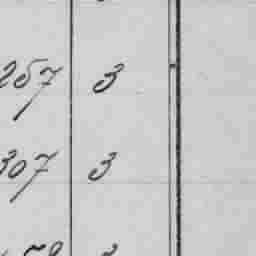 257 3
307 3